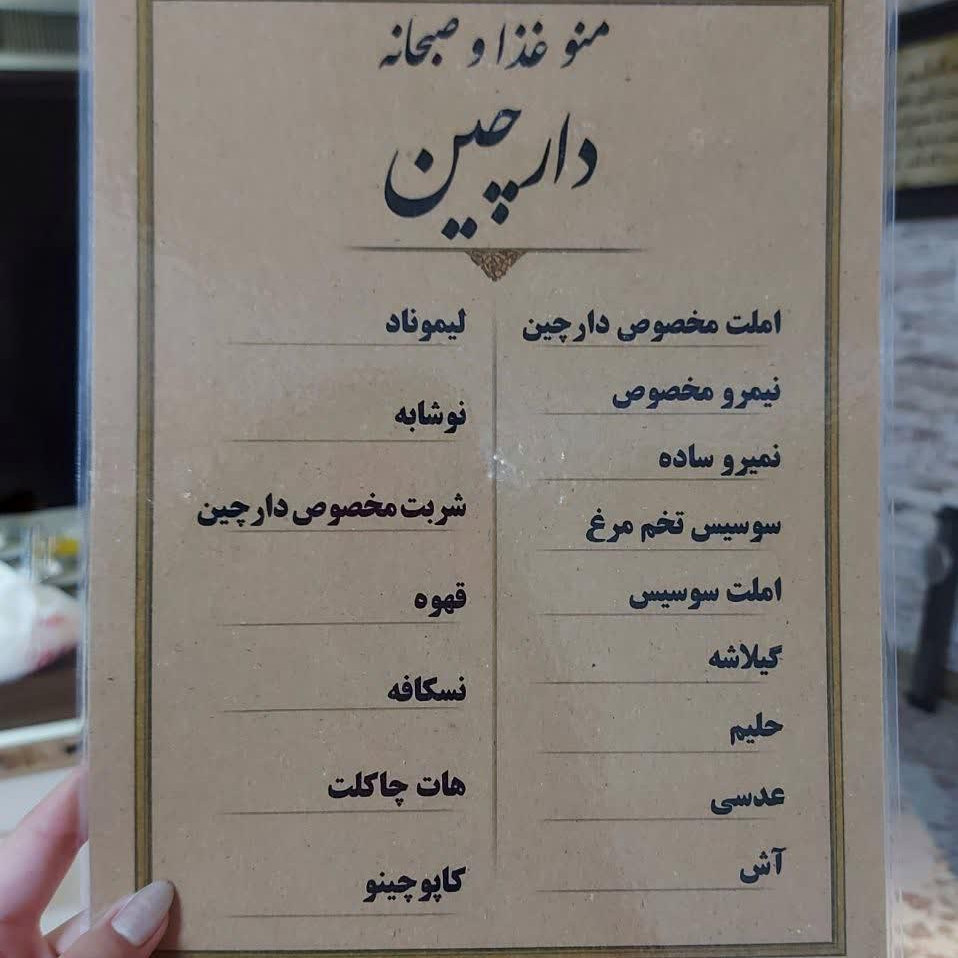 منو غذا و صبحانه
دارچین
املت مخصوص دارچین
نیمرو مخصوص
نمیرو ساده
سوسیس تخم مرغ
املت سوسیس
گیلاشه
حلیم
عدسی
آش
لیموناد
نوشابه
شربت مخصوص دارچین
قهوه
نسکافه
هات چاکلت
کاپوچینو